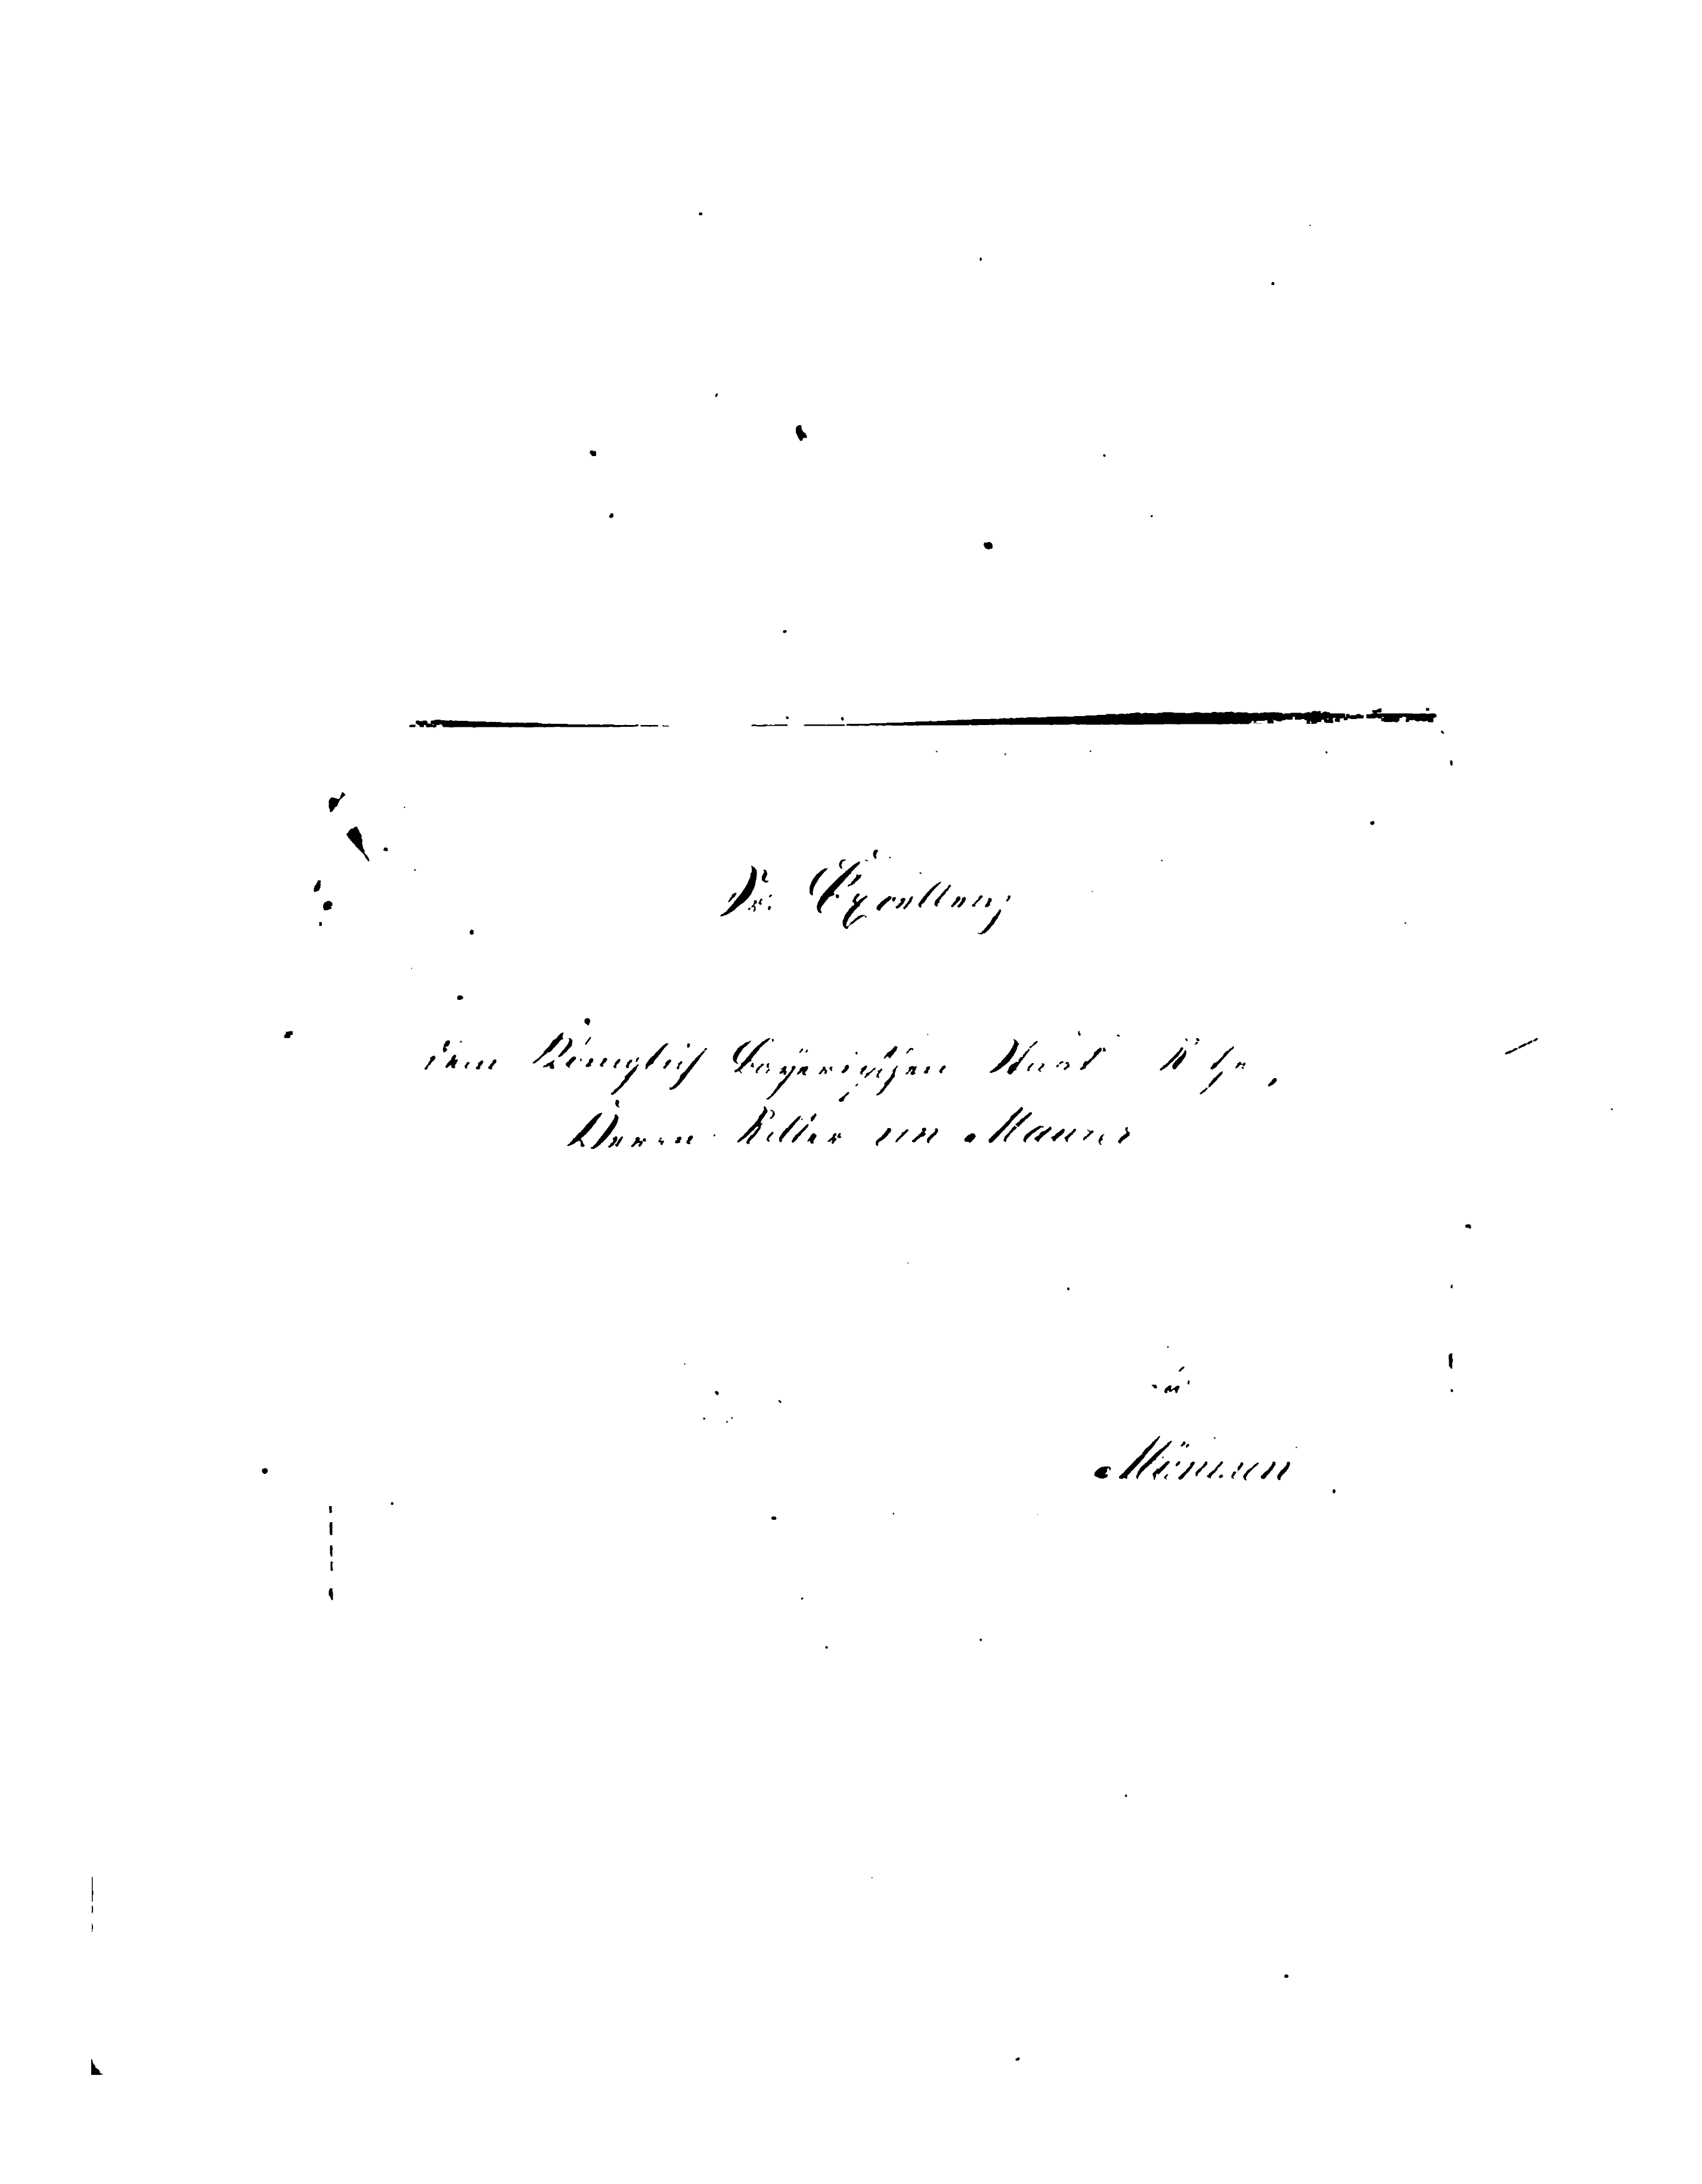 Sr. Exzellenz
dem Königlich Bayerischen Staatsrathe,
Herrn Ritter von Maurer
zu
München